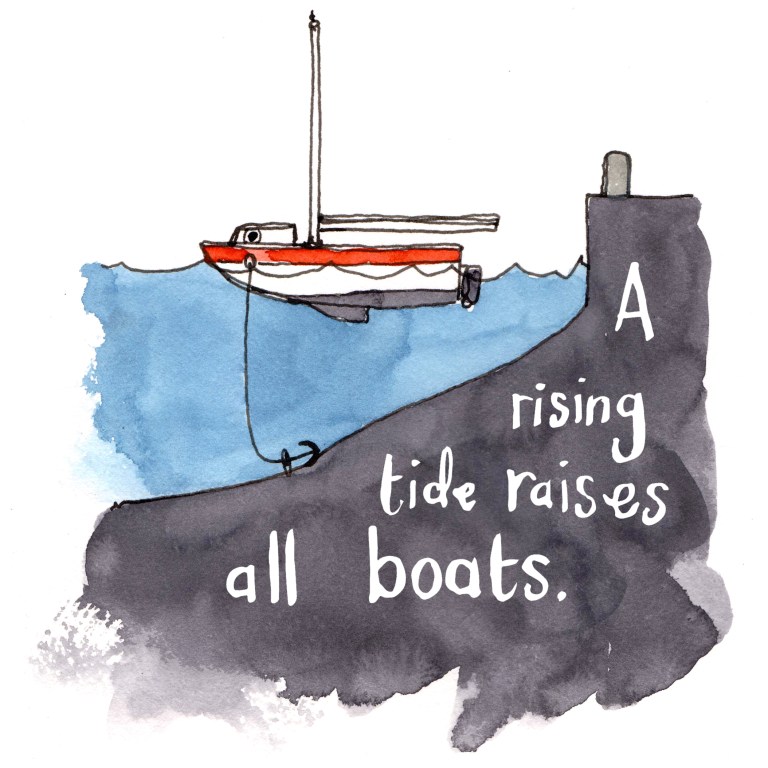 A
rising
tide raises
all boats.